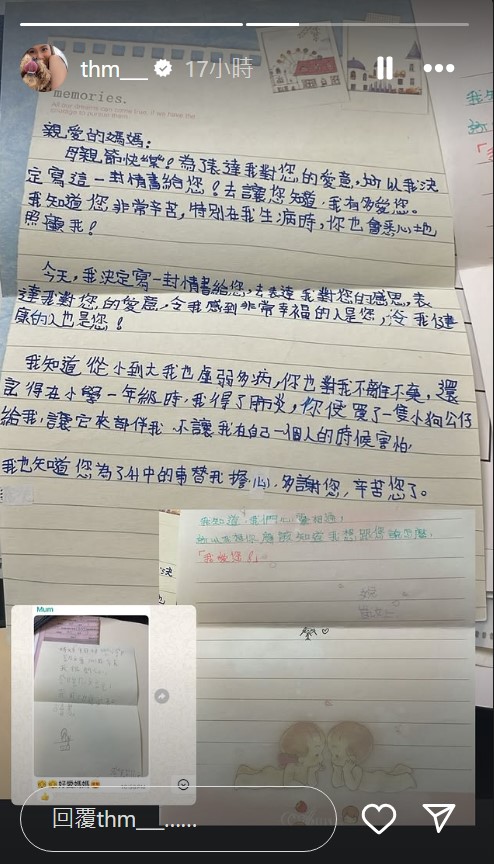 thm___ 17小時
memories.
All our dreams can come true, if we have the
courage to pursue them.
親愛的媽媽：
母親節快樂！為了表達我對您的愛意，所以我決
定寫這一封情書給您！去讓您知道，我有多愛您。
我知道您非常辛苦，特別在我生病時，你也會悉心地
照顧我！
今天，我決定寫一封情書給您，去表達我對您的感恩，表
達我對您的愛意，令我感到非常幸福的人是您，令我健
康的人也是您！
我知道從小到大我也虛弱多病，你也對我不離不棄，還
記得在小學一年級時，我得了肺炎，你便買了一隻小狗公仔
給我，讓它來部伴我，不讓我在自己一個人的時候害怕
我也知道您為了升中的事替我擔心，多謝您，辛苦您了。
我知道，我們心靈相通，
所以
知道我想跟您說
「我愛您！」
Mum
好愛媽媽
回覆thm___......